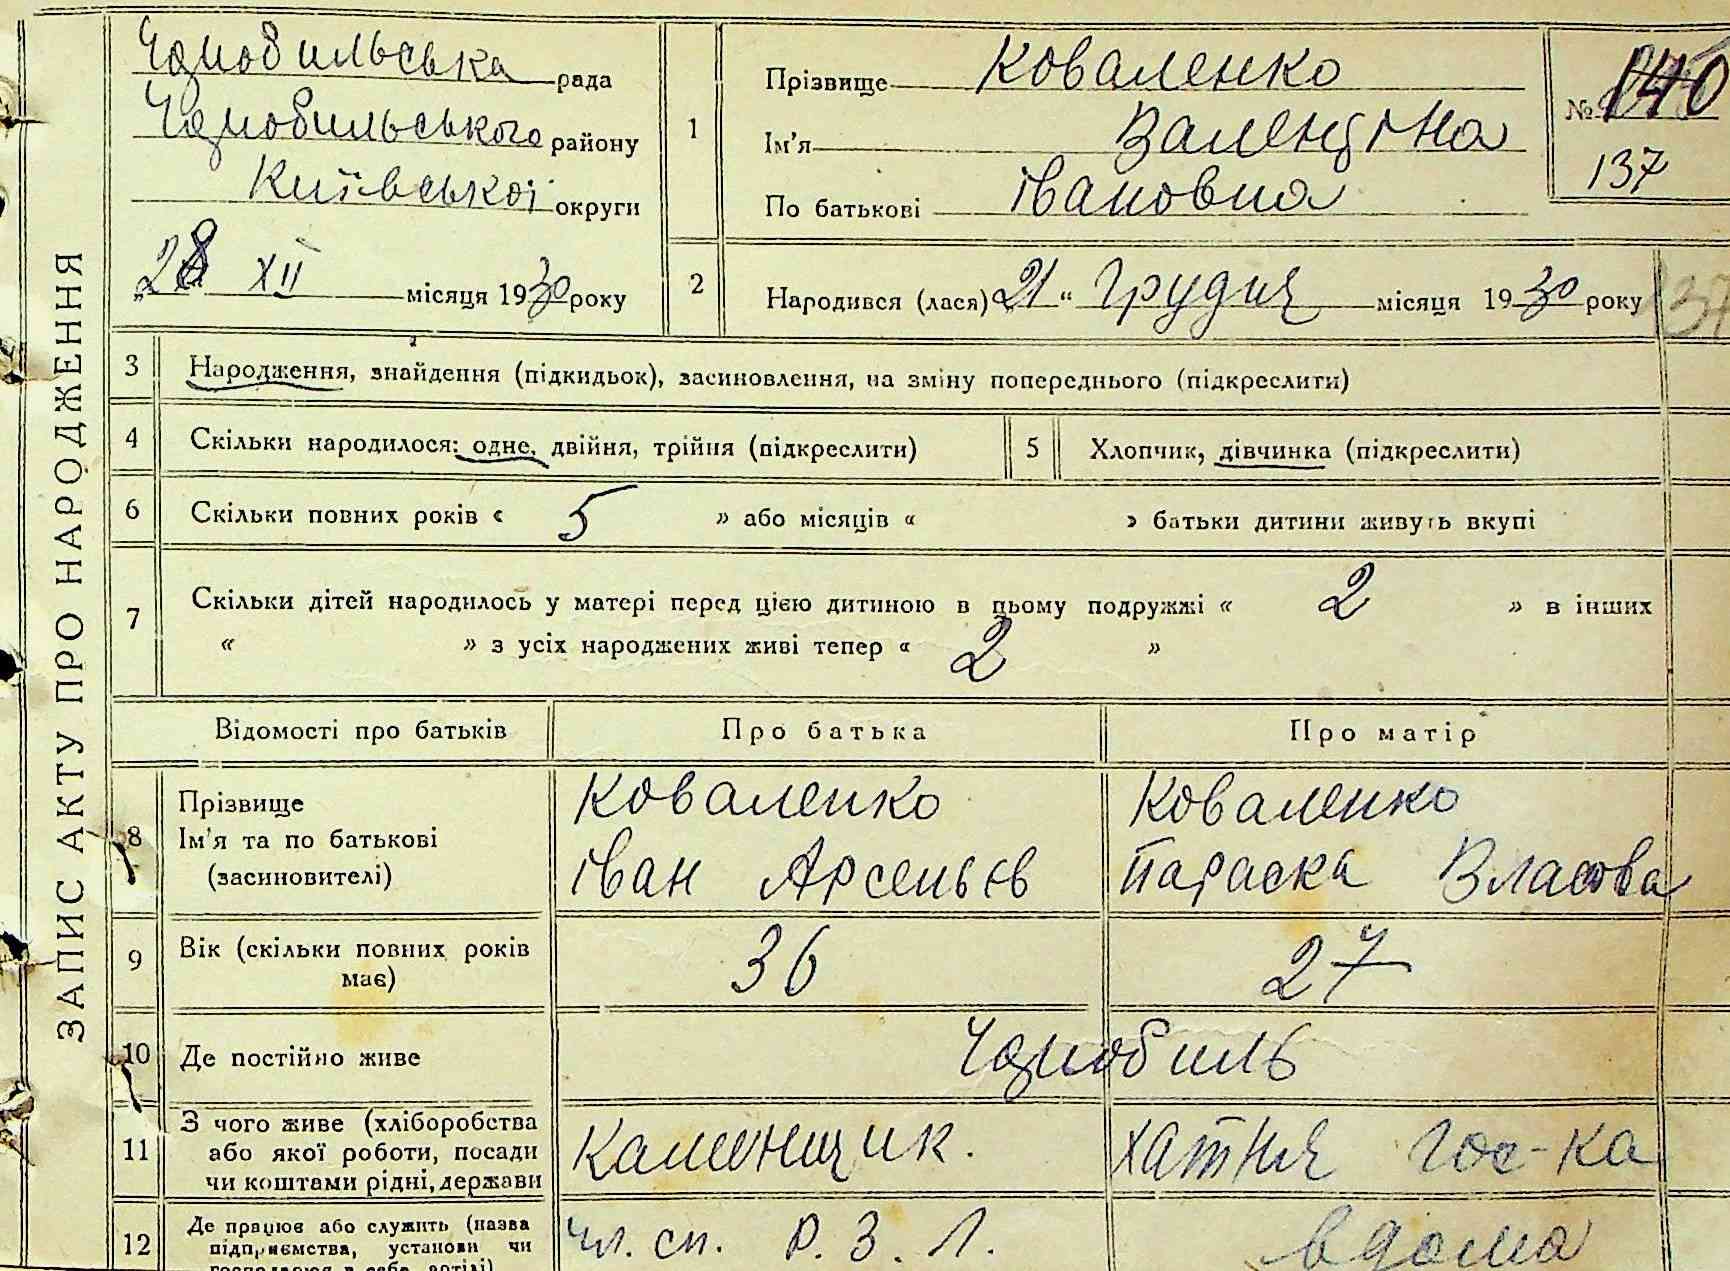 ЗАПИС АКТУ ПРО НАРОДЖЕННЯ
Чорнобильська рада
Чорнобильського району
Київської округи
„28“ XII місяця 1930 року
1
Прізвище Коваленко
Ім'я Валентіна
По батькові Івановна
№ 140
137
2
Народився (лася) „21“ Грудня місяця 1930 року
137
3 Народження, знайдення (підкидьок), засиновлення, на зміну попереднього (підкреслити)
4 Скільки народилося: одне, двійня, трійня (підкреслити)
5 Хлопчик, дівчинка (підкреслити)
6 Скільки повних років « 5 » або місяців « » батьки дитини живуть вкупі
7 Скільки дітей народилось у матері перед цією дитиною в цьому подружжі « 2 » в інших
« » з усіх народжених живі тепер « 2 »
Відомості про батьків Про батька Про матір
8 Прізвище
Ім'я та по батькові
(засиновителі)
Коваленко
Іван Арсеньєв
Коваленко
Параска Власова
9 Вік (скільки повних років
має)
36
27
10 Де постійно живе
Чорнобиль
11 З чого живе (хліборобства
або якої роботи, посади
чи коштами рідні, держави
Каменщик.
хатня гос-ка
12 Де працює або служить (назва
підприємства, установи чи
чл. сп. Р. З. Л.
вдома